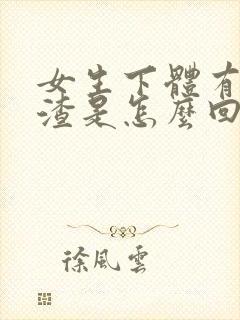 女生下體有
渣是怎麼回
徐風雲